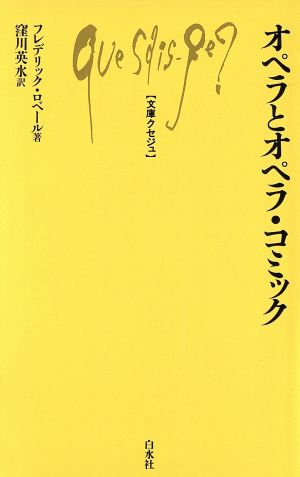 オペラとオペラ・コミック
Que sais-je?
【文庫クセジュ】
フレデリック・ロベール著
窪川英水訳
白水社